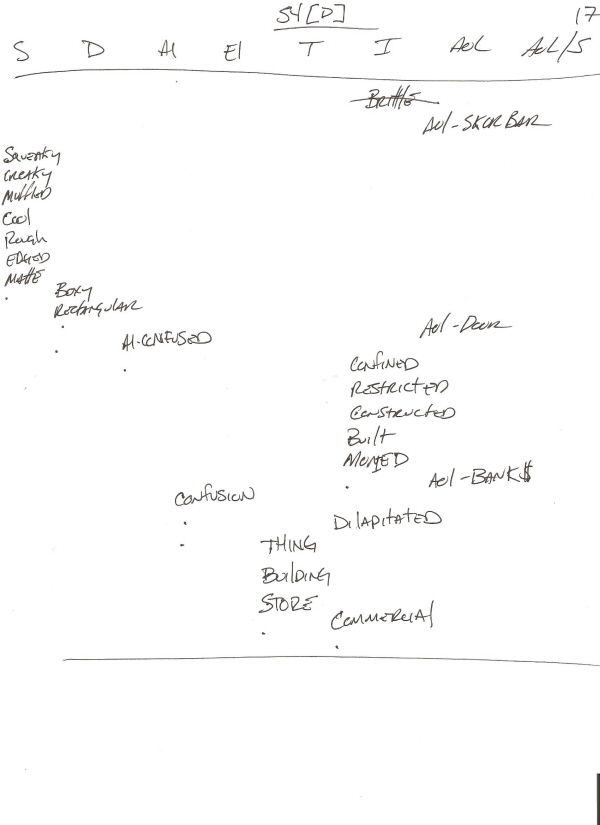 S4[D]
17
S D AI EI T I AOL AOL/S
Brittle
AOL-SKOR BAR
Squeaky
Creaky
Muffled
Cool
Rough
EDGED
Matte
Boxy
Rectangular
AOL-Door
AI-CONFUSED
CONFINED
RESTRICTED
CONSTRUCTED
Built
MONIED
AOL-BANK$
CONFUSION
DILAPITATED
THING
BUILDING
STORE
COMMERCIAL